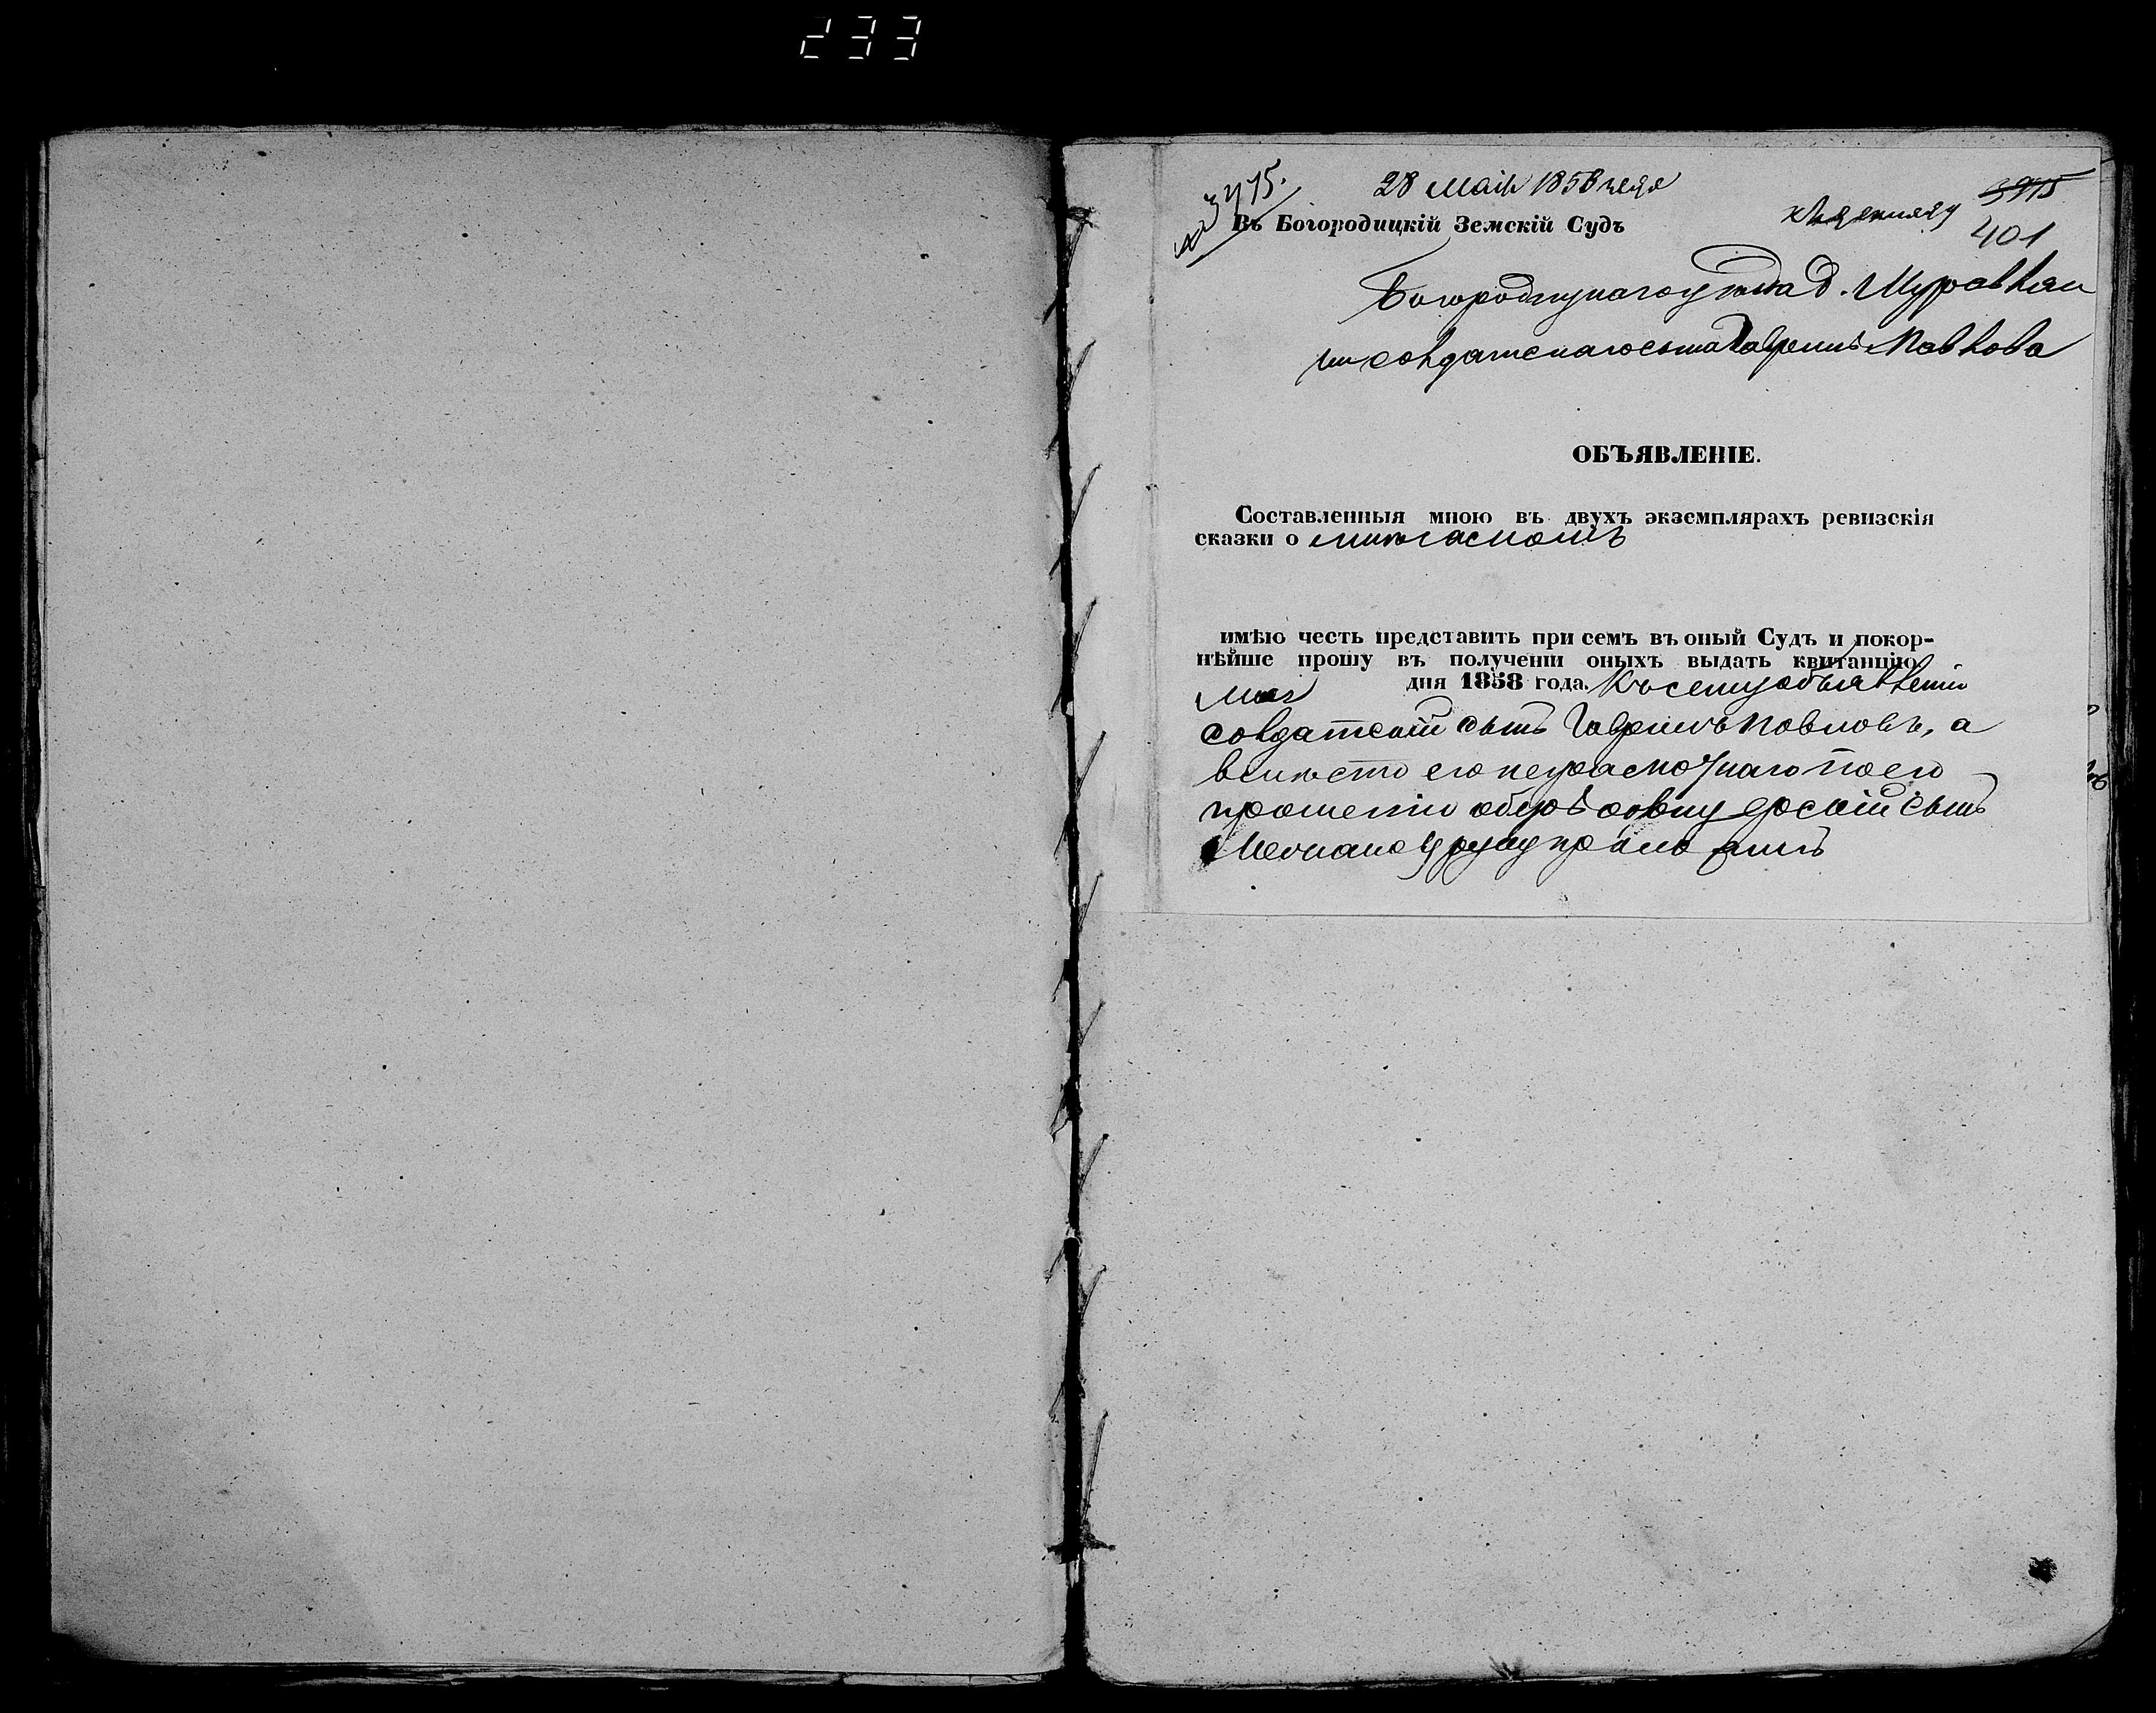 233
№ 3475.
28 Маія 1858 года
3975
401
Въ Богородицкій Земскій Судъ
Богородицкаго уѣзда д. Муравлян
солдатскаго сына Гаврилы Павлова
ОБЪЯВЛЕНІЕ.
Составленныя мною въ двухъ экземплярахъ ревизскія
сказки о
имѣю честь представить при семъ въ оный Судъ и покор-
нѣйше прошу въ полученіи оныхъ выдать квитанцію
Мая дня 1858 года. Къ сему объявленію
солдатскій сынъ Гаврилъ Павловъ, а
вмѣсто его неграмотнаго по его
прошенію сынъ
руку приложилъ